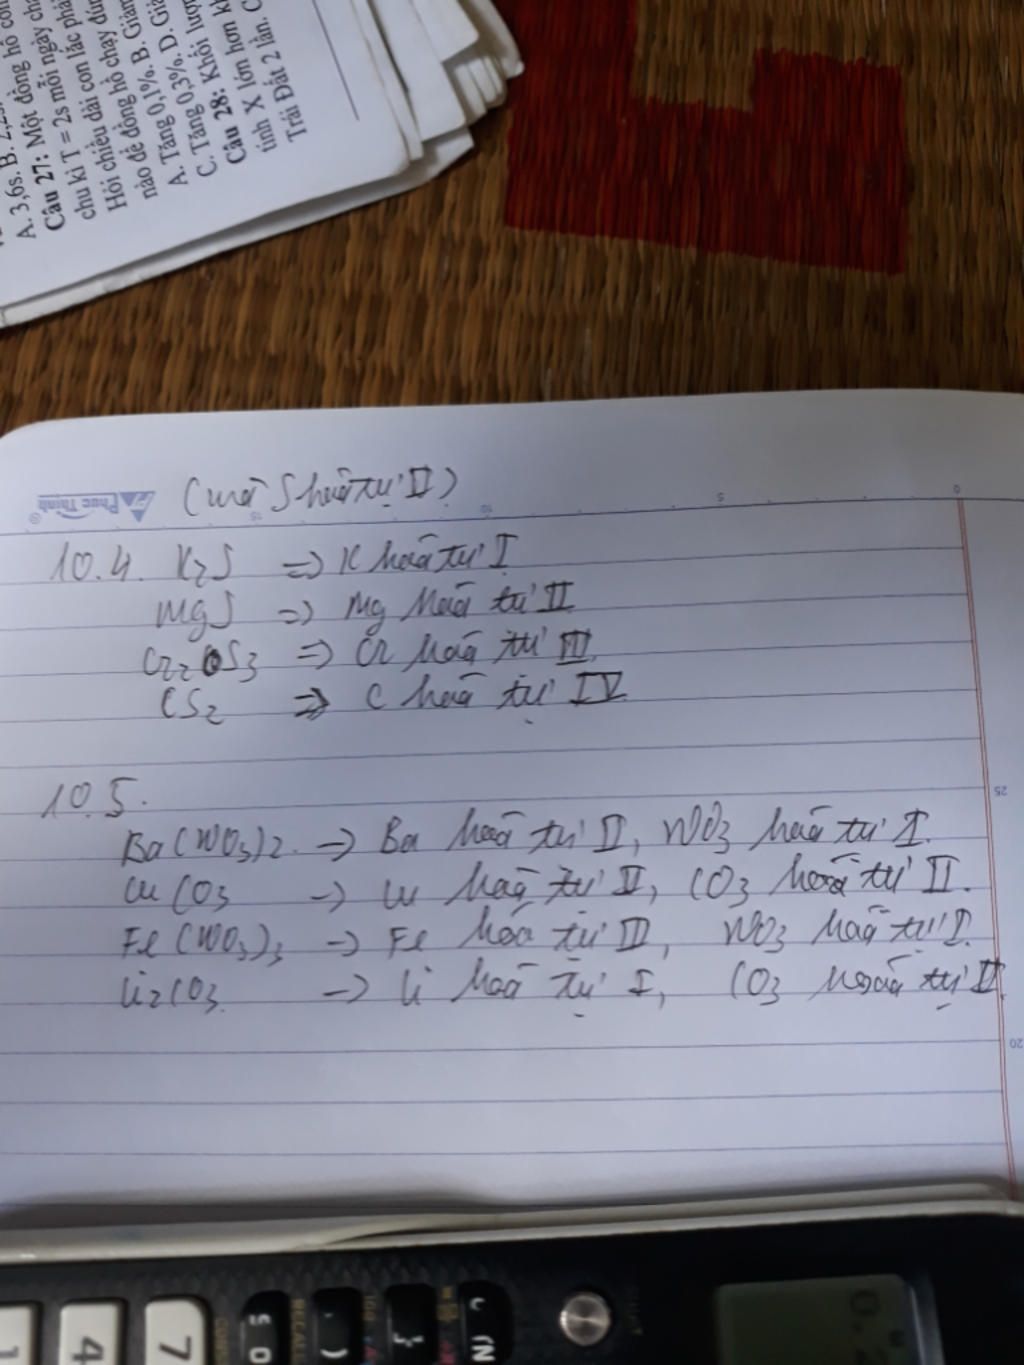 A. 3,6s. B. 2,2s.
Câu 27: Một đồng hồ
chu kì T = 2s mỗi ngày
Hỏi chiều dài con lắc phải
nào để đồng hồ chạy
A. Tăng 0,1%. B. Giảm
C. Tăng 0,3%. D.
Câu 28: Khối lượng
tinh X lớn hơn
Trái Đất 2 lần.
Phúc Thịnh
(với S hoá trị II)
0 5 10 15
10.4. K2S => K hoá trị I
MgS => Mg hoá trị II
Cr2S3 => Cr hoá trị III
CS2 => C hoá trị IV
10.5.
Ba(NO3)2 -> Ba hoá trị II, NO3 hoá trị I.
CuCO3 -> Cu hoá trị II, CO3 hoá trị II.
Fe(NO3)3 -> Fe hoá trị III, NO3 hoá trị I.
Li2CO3 -> Li hoá trị I, CO3 hoá trị II
25
20
1 4 7